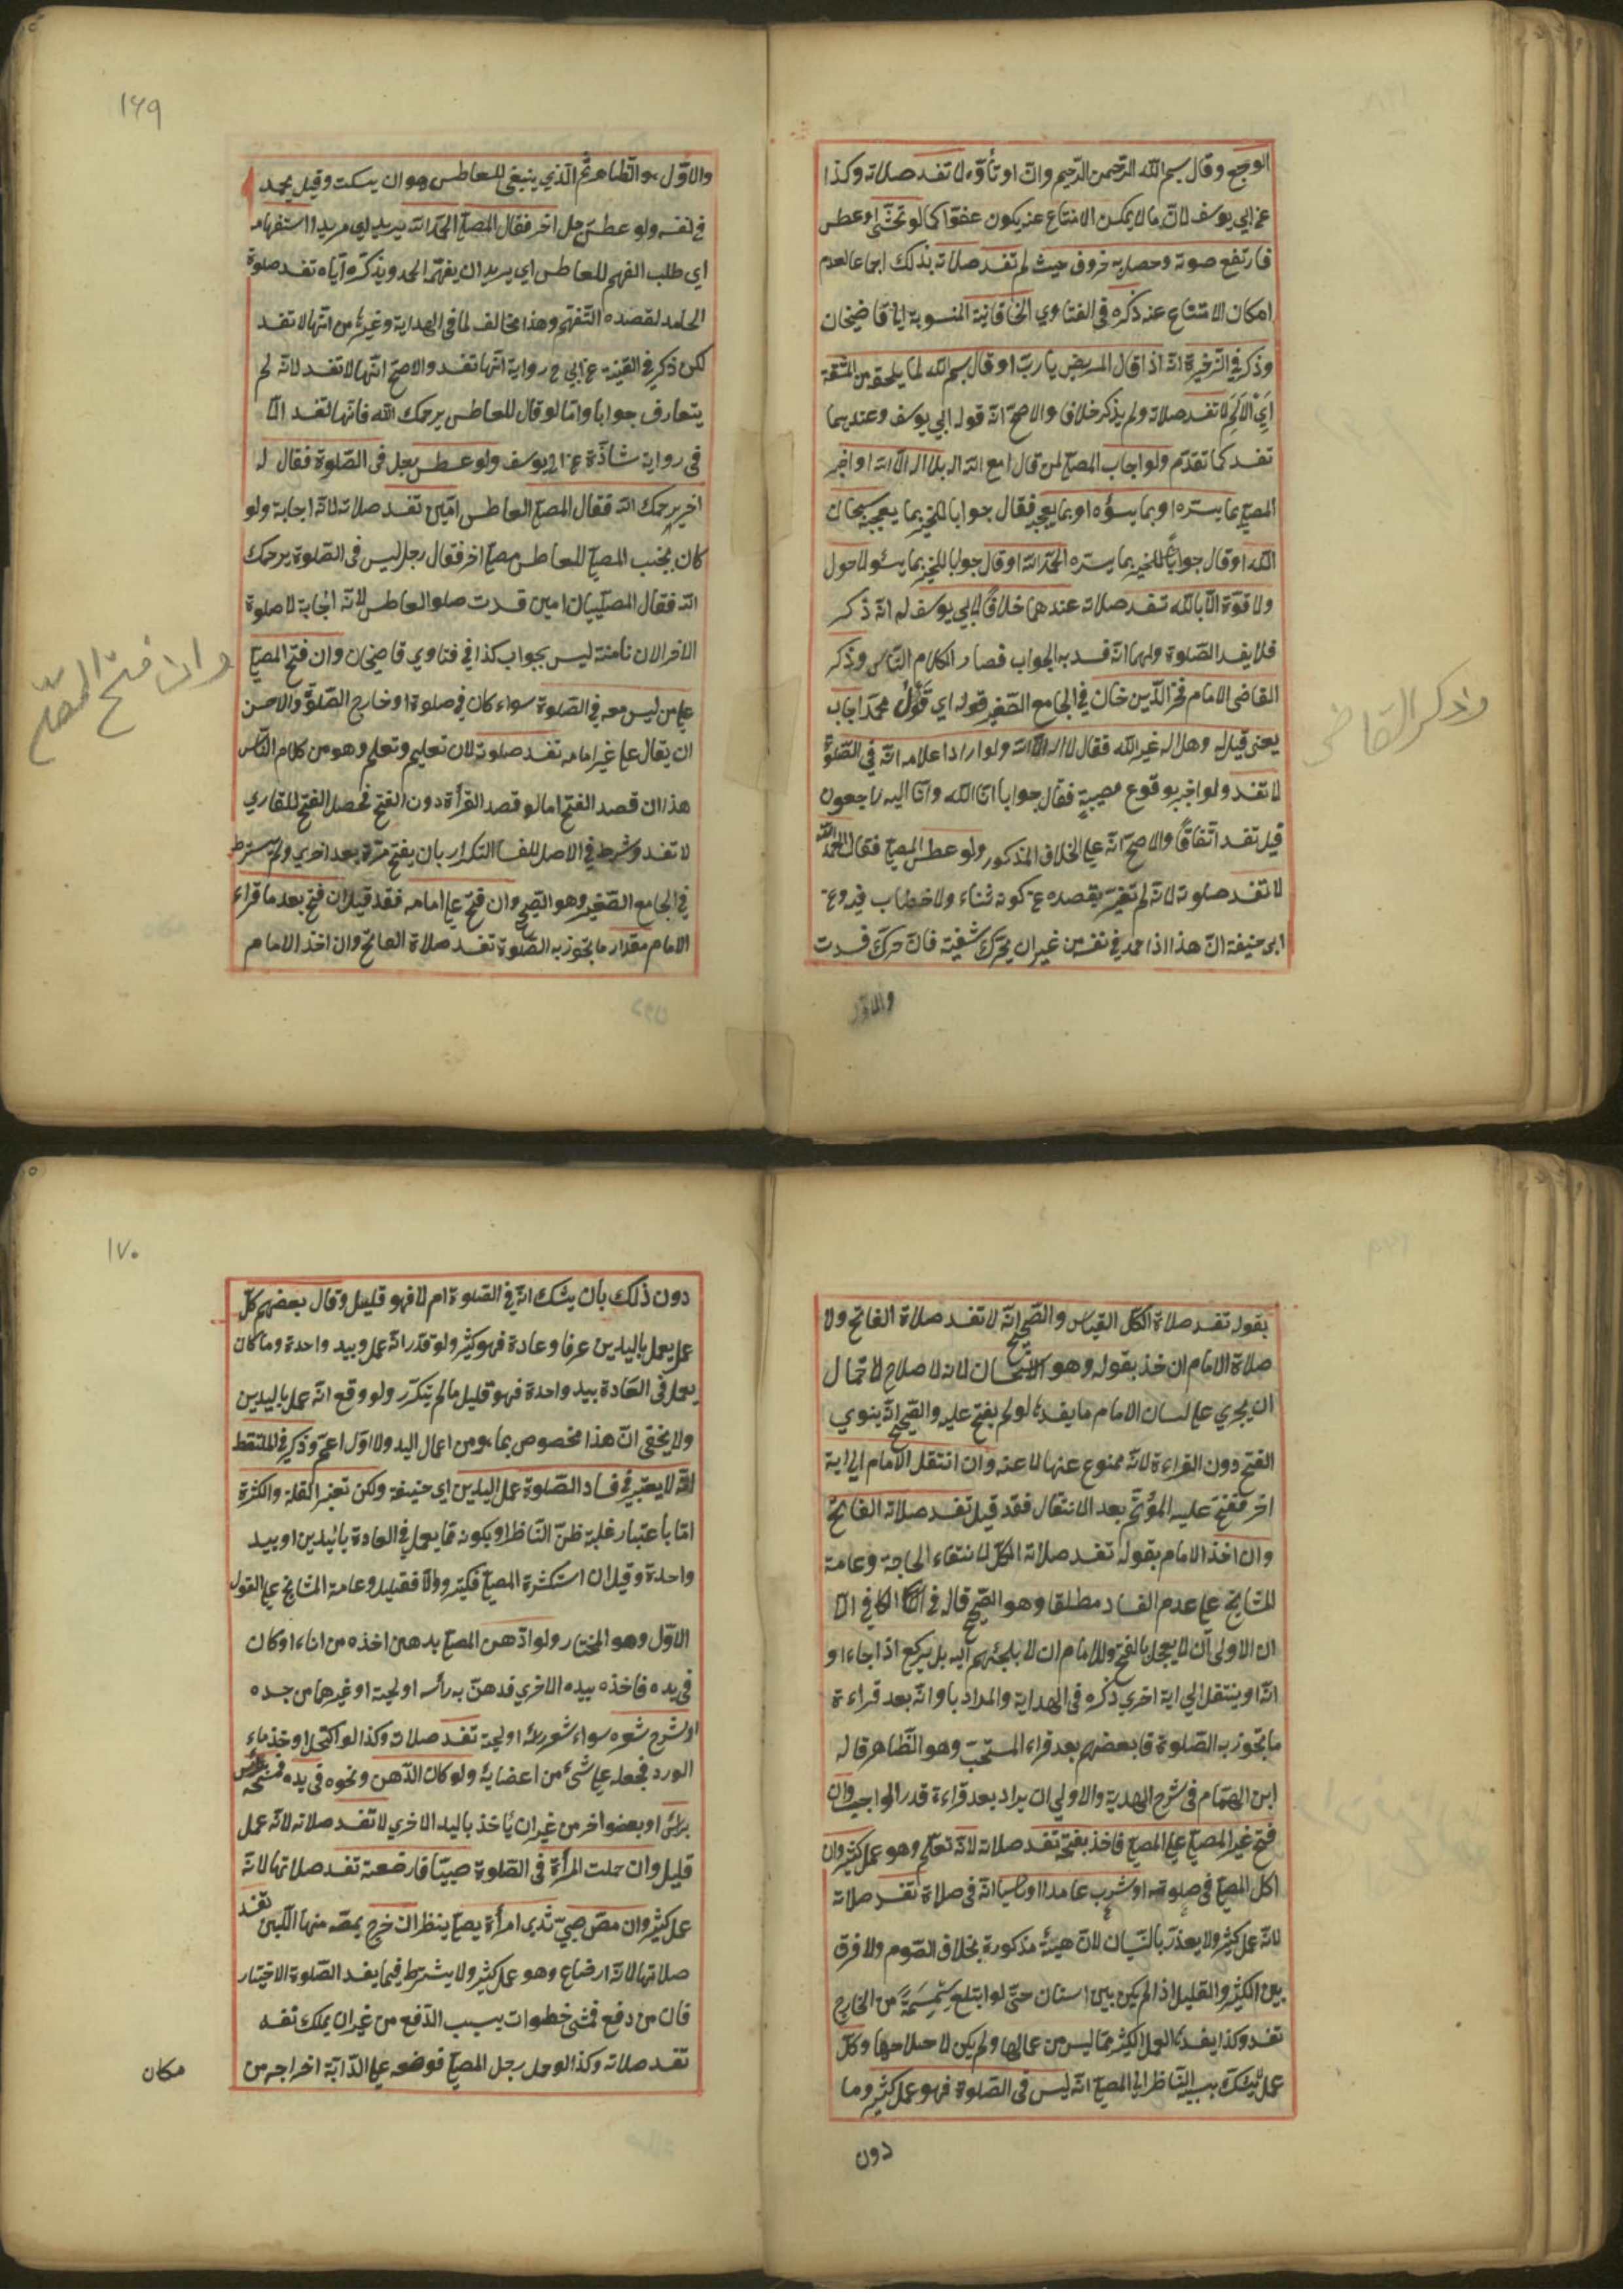 الوجع وقال بسم الله الرحمن الرحيم وانّ او تأوّه لا تفسد صلاته وكذا
عن ابي يوسف لانّ ما لا يمكن الامتناع عنه يكون عفوا كما لو تجشّئ او عطس
فارتفع صوته وحصل به حروف حيث لم تفسد صلاته بذلك اجماعا لعدم
امكان الامتناع عنه ذكره في الفتاوي الخاقانية المنسوبة الى قاضيخان
وذكر في الذخيرة انّه اذا قال المريض يا ربّ او قال بسم الله لما يلحقه من المشقة
اي الالم لا تفسد صلاته ولم يذكر خلافا والاصحّ انّه قول ابي يوسف وعندهما
تفسد كما تقدّم ولو اجاب المصلّي لمن قال امع الله اله بلا اله الّا الله او اخبر
المصلّي بما يسرّه او بما يسؤه او بما يعجبه فقال جوابا للمخبر بما يعجبه سبحان
الله او قال جوابا للمخبر بما يسرّه الحمد لله او قال جوابا للمخبر بما يسئوه لا حول
ولا قوّة الّا بالله تفسد صلاته عندهما خلافا لابي يوسف له انّه ذكر
فلا يفسد الصّلوة ولهما انّه قصد به الجواب فصار كلام النّاس وذكر
القاضى الامام فخر الدّين خان في الجامع الصّغير قوله اي قول محمّد اجاب
يعنى قيل له وهل اله غير الله فقال لا اله الّا الله ولو اراد اعلامه انّه في الصّلوة
لا تفسد ولو اخبر بوقوع مصيبة فقال جوابا انّا لله وانّا اليه راجعون
قيل تفسد اتّفاقًا والاصحّ انّه على الخلاف المذكور ولو عطس المصلّي فقال الحمد لله
لا تفسد صلوته لانّه لم تغيّر بقصده عن كونه ثناء ولا خطاب فيه وعن
ابى حنيفة انّ هذا اذا حمد في نفسه من غير ان يحرّك شفتيه فان حرّك فسدت
والاوّل
وذكر القاضى
١٦٩
والاوّل هو الظاهر ثمّ الّذي ينبغى للعاطس هو ان يسكت وقيل يحمد
في نفسه ولو عطس رجل اخر فقال المصلّي الحمد لله يريد اي مريدا استفهامه
اي طلب الفهم للعاطس اي يريد ان يفهّمه الحمد ويذكّره ايّاه تفسد صلوة
الحامد لقصده التّفهّم وهذا مخالف لما في الهداية وغيره من انّها لا تفسد
لكن ذكر في القنية عن ابي ح رواية انّها تفسد والاصحّ انّها لا تفسد لانّه لم
يتعارف جوابا وامّا لو قال للعاطس يرحمك الله فانّها تفسد الّا
في رواية شاذّة عن ابى يوسف ولو عطس رجل فى الصّلوة فقال له
اخر يرحمك الله فقال المصلّي العاطس امّين تفسد صلاته لانّه اجابة ولو
كان بجنب المصلّي العاطس مصلّي اخر فقال رجل ليس في الصّلوة يرحمك
الله فقال المصلّيان امين فسدت صلوة العاطس لانّه اجابة لا صلوة
الاخر لان تأمينه ليس بجواب كذا في فتاوي قاضيخان وان فتح المصلّي
على من ليس معه في الصّلوة سواء كان في صلوة او خارج الصّلوة والاحسن
ان يقال على غير امامه تفسد صلوته لان تعليم وتعلم وهو من كلام النّاس
هذا ان قصد الفتح اما لو قصد القرأة دون الفتح فحصل الفتح للقاري
لا تفسد وشرط في الاصل للفساد التكرار بان يفتح مرّة بعد اخري ولم يشترط
في الجامع الصّغير وهو الصّحيح وان فتح على امامه فقد قيل ان فتح بعد ما قراء
الامام مقدار ما تجوز به الصّلوة تفسد صلاة الفاتح وان اخذ الامام
وان فتح المصلّي
بقوله تفسد صلاة الكلّ القياس والصّحيح انّه لا تفسد صلاة الفاتح ولا
صلاة الامام ان اخذ بقوله وهو الاستحسان لانه لاصلاح لاحتمال
ان يجري على لسان الامام ما يفسده لو لم يفتح عليه والصّحيح انّه ينوي
الفتح دون القراءة لانّه ممنوع عنها لا عنه وان انتقل الامام الى اية
اخر ففتح عليه المؤتمّ بعد الانتقال فقد قيل تفسد صلاته الفاتح
وان اخذ الامام بقوله تفسد صلاته الكلّ لانتفاء الحاجة وعامة
المشايخ على عدم الفساد مطلقا وهو الصّحيح قاله في الكافي الّا
ان الاولى ان لا يعجل بالفتح وللامام ان لا يلجئهم اليه بل يركع اذا جاء او
انّه او ينتقل الى اية اخري ذكره في الهداية والمراد باوانه بعد قراءة
ما تجوز به الصّلوة قال بعضهم بعد قراء المستحبّ وهو الظّاهر قاله
ابن الهمّام في شرح الهدية والاولي ان يراد بعد قراءة قدر الواجب وان
فتح غير المصلّي على المصلّي فاخذ بفتحه تفسد صلاته لانّه تعلّم وهو عمل كثير وان
اكل المصلّي في صلوته او شرب عامدا او ناسيا انّه في صلاة تفسد صلاته
لانّه عمل كثير ولا يعذر بالنّسيان لانّ هيئة مذكورة بخلاف الصّوم ولا فرق
بين الكثير والقليل اذا لم يكن بين اسنان حتّى لو ابتلع سمسمةً من الخارج
تفسد وكذا يفسدها العمل الكثير ممّا ليس من عمالها ولم يكن لاصلاحها وكلّ
عمل يشكّ بسببه النّاظر الى المصلّي انّه ليس في الصّلوة فهو عمل كثير وما
دون
١٧٠
دون ذلك بأن يشك انّه في الصّلوة ام لا فهو قليل وقال بعضهم كلّ
عمل يعمل باليدين عرفا وعادة فهو كثير ولو قدّر انّه عمل وبيد واحدة وما كان
يعمل في العادة بيد واحدة فهو قليل ما لم يتكرّر ولو وقع انّه عمل باليدين
ولا يخفى انّ هذا مخصوص بما هو من اعمال اليد والاوّل اعمّ وذكر في الملتقط
انّه لا يعتبر في فساد الصّلوة عمل اليدين اي حنيفة ولكن تعتبر القلة والكثرة
امّا باعتبار غلبة ظنّ النّاظر او يكونه ممّا يعمل في العادة باليدين او بيد
واحدة وقيل ان استكثرة المصلّي فكثير والّا فقليل وعامة المشايخ على القول
الاوّل وهو المختار ولو ادّهن المصلّي بدهن اخذه من اناء او كان
في يده فاخذه بيده الاخري فدهّن به رأسه او لحيته او غيرهما من جسده
او سّرح شعره سواء شعر رأسه او لحيته تفسد صلاته وكذا لو اكتحل او خذ ماء
الورد فجعله على شئ من اعضايه ولو كان الدّهن ونحوه في يده فمسحه
براسه او بعضو اخر من غير ان ياخذ باليد الاخري لا تفسد صلاته لانّه عمل
قليل وان حملت المرأة فى الصّلوة صبيّا فارضعته تفسد صلاتها لانّه
عمل كثير وان مصّ صبيّ ثدى امرأة يصلّي ينظر ان خرج بمصّه منها اللّبن تفسد
صلاتها لانّه ارضاع وهو عمل كثير ولا يشترط فيما يفسد الصّلوة الاختيار
فان من دفع فمشى خطوات بسبب الدّفع من غير ان يملك نفسه
تفسد صلاته وكذا لو حمل رجل المصلّي فوضعه على الدّابة اخراجه من
مكان